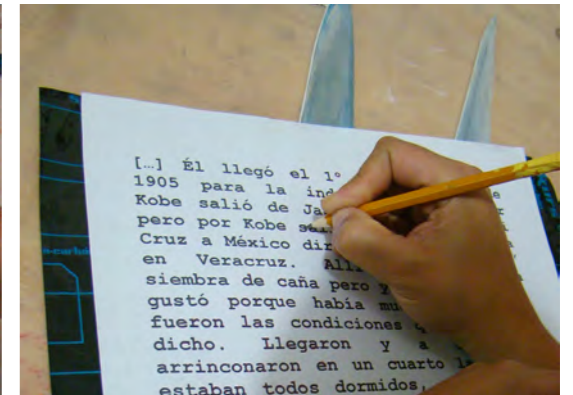 […] Él llegó el 1°
1905 para la
Kobe salió de
pero por Kobe
Cruz a México
en Veracruz.
siembra de caña pero
gustó porque había
fueron las condiciones
dicho. Llegaron y a
arrinconaron en un cuarto
estaban todos dormidos,